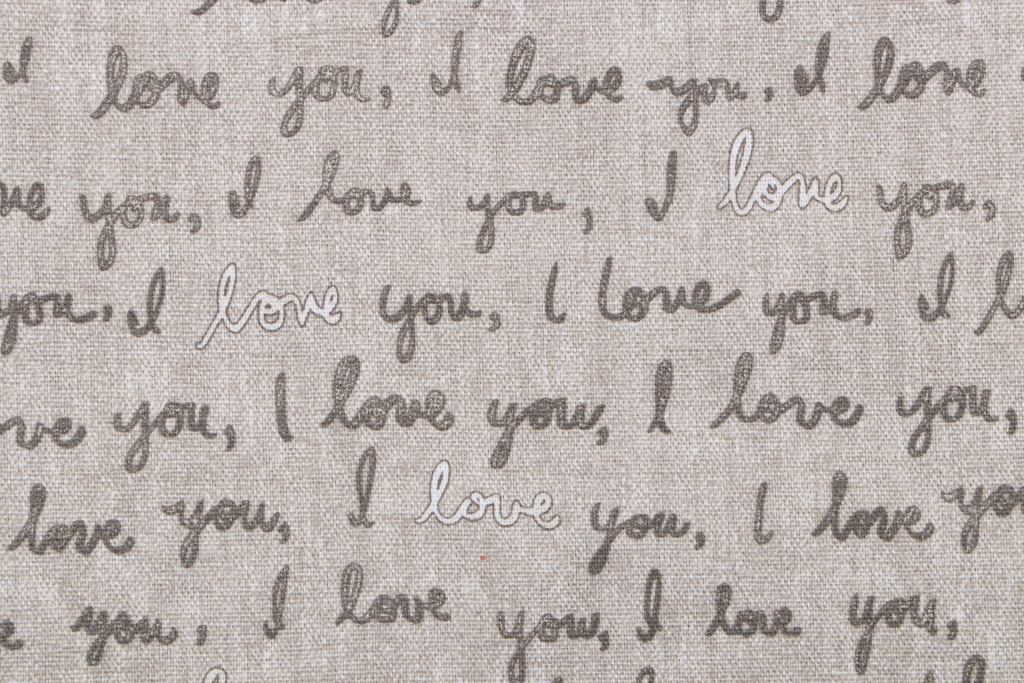 I love you, I love you, I love
you, I love you, I love you,
you, I love you, I love you, I
you, I love you, I love you,
love you, I love you, I love you
you, I love you, I love you,